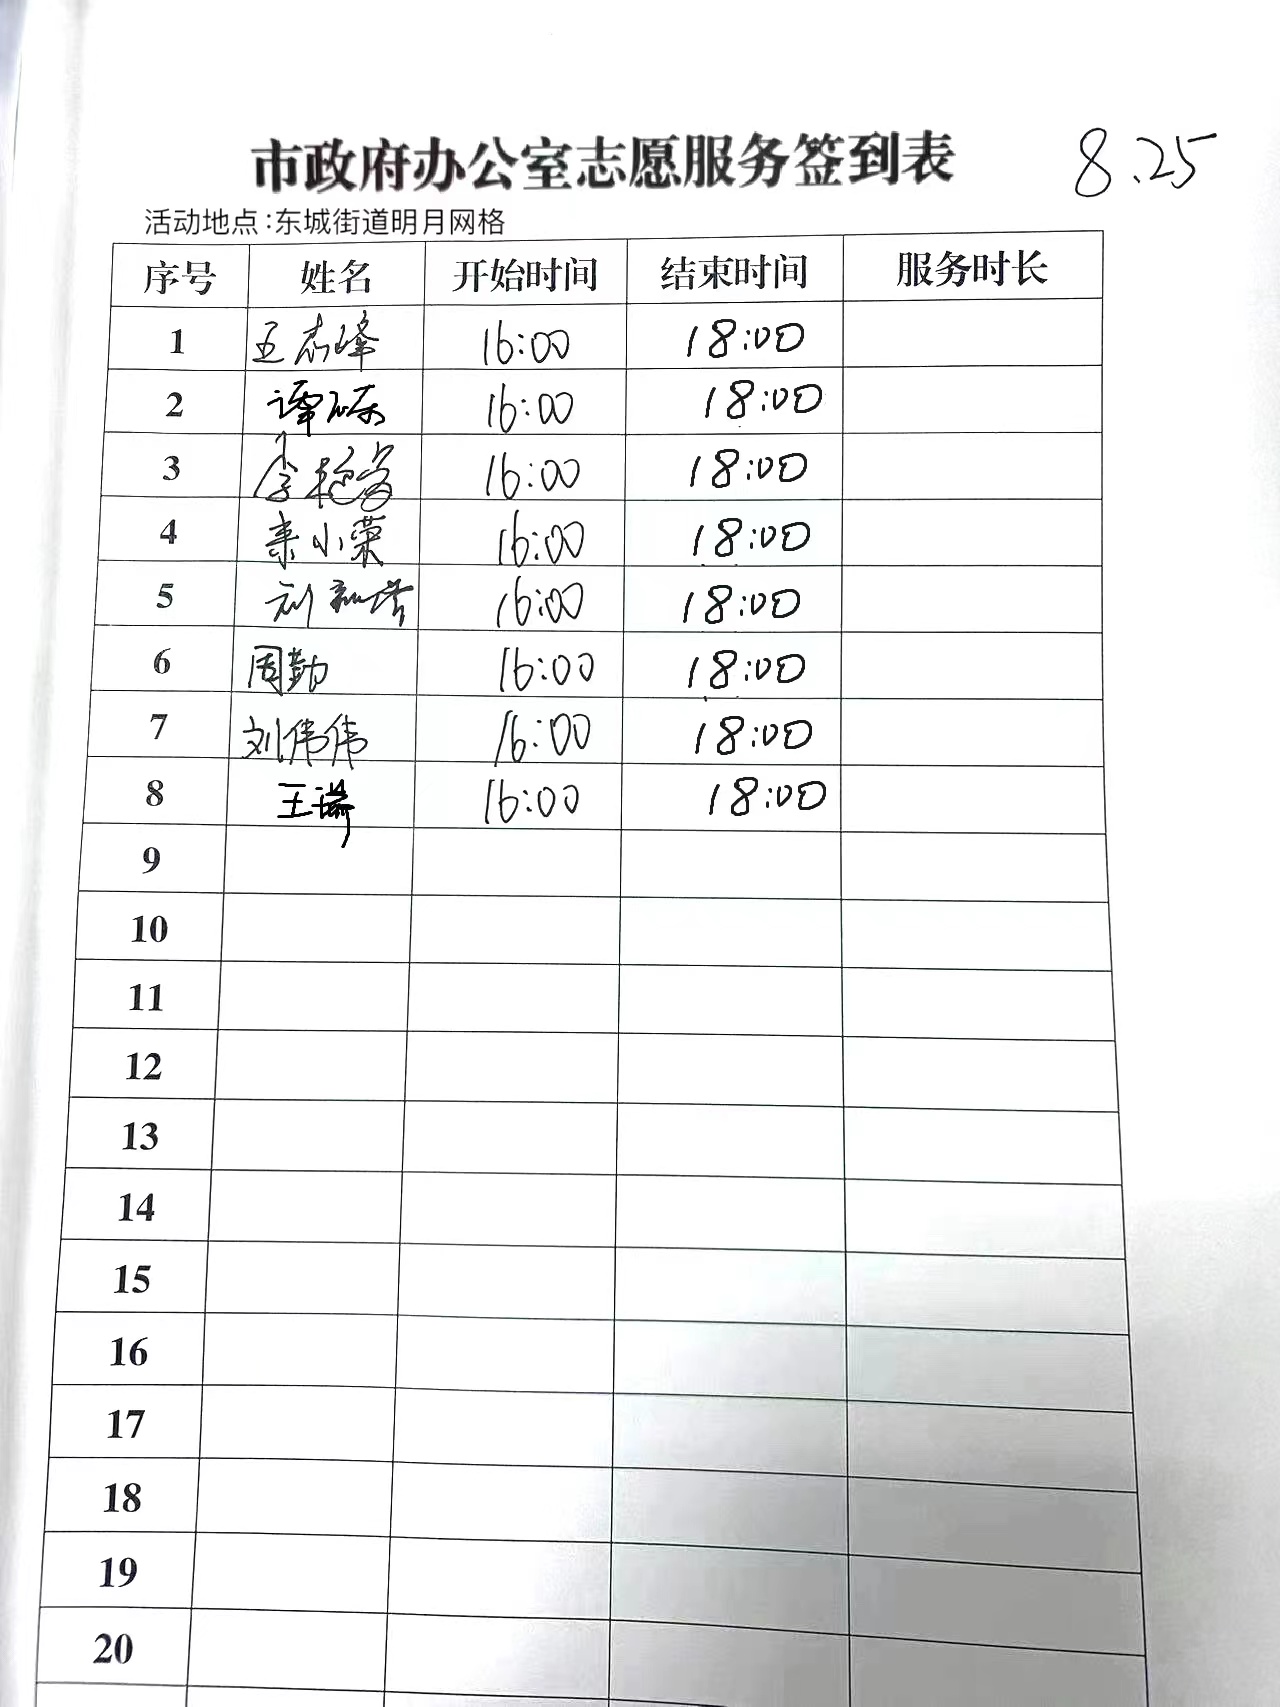 市政府办公室志愿服务签到表 8.25
活动地点:东城街道明月网格
序号 姓名 开始时间 结束时间 服务时长
1 王志峰 16:00 18:00
2 谭 16:00 18:00
3 李艳 16:00 18:00
4 小荣 16:00 18:00
5 刘 16:00 18:00
6 周勤 16:00 18:00
7 刘伟伟 16:00 18:00
8 王瑞 16:00 18:00
9
10
11
12
13
14
15
16
17
18
19
20